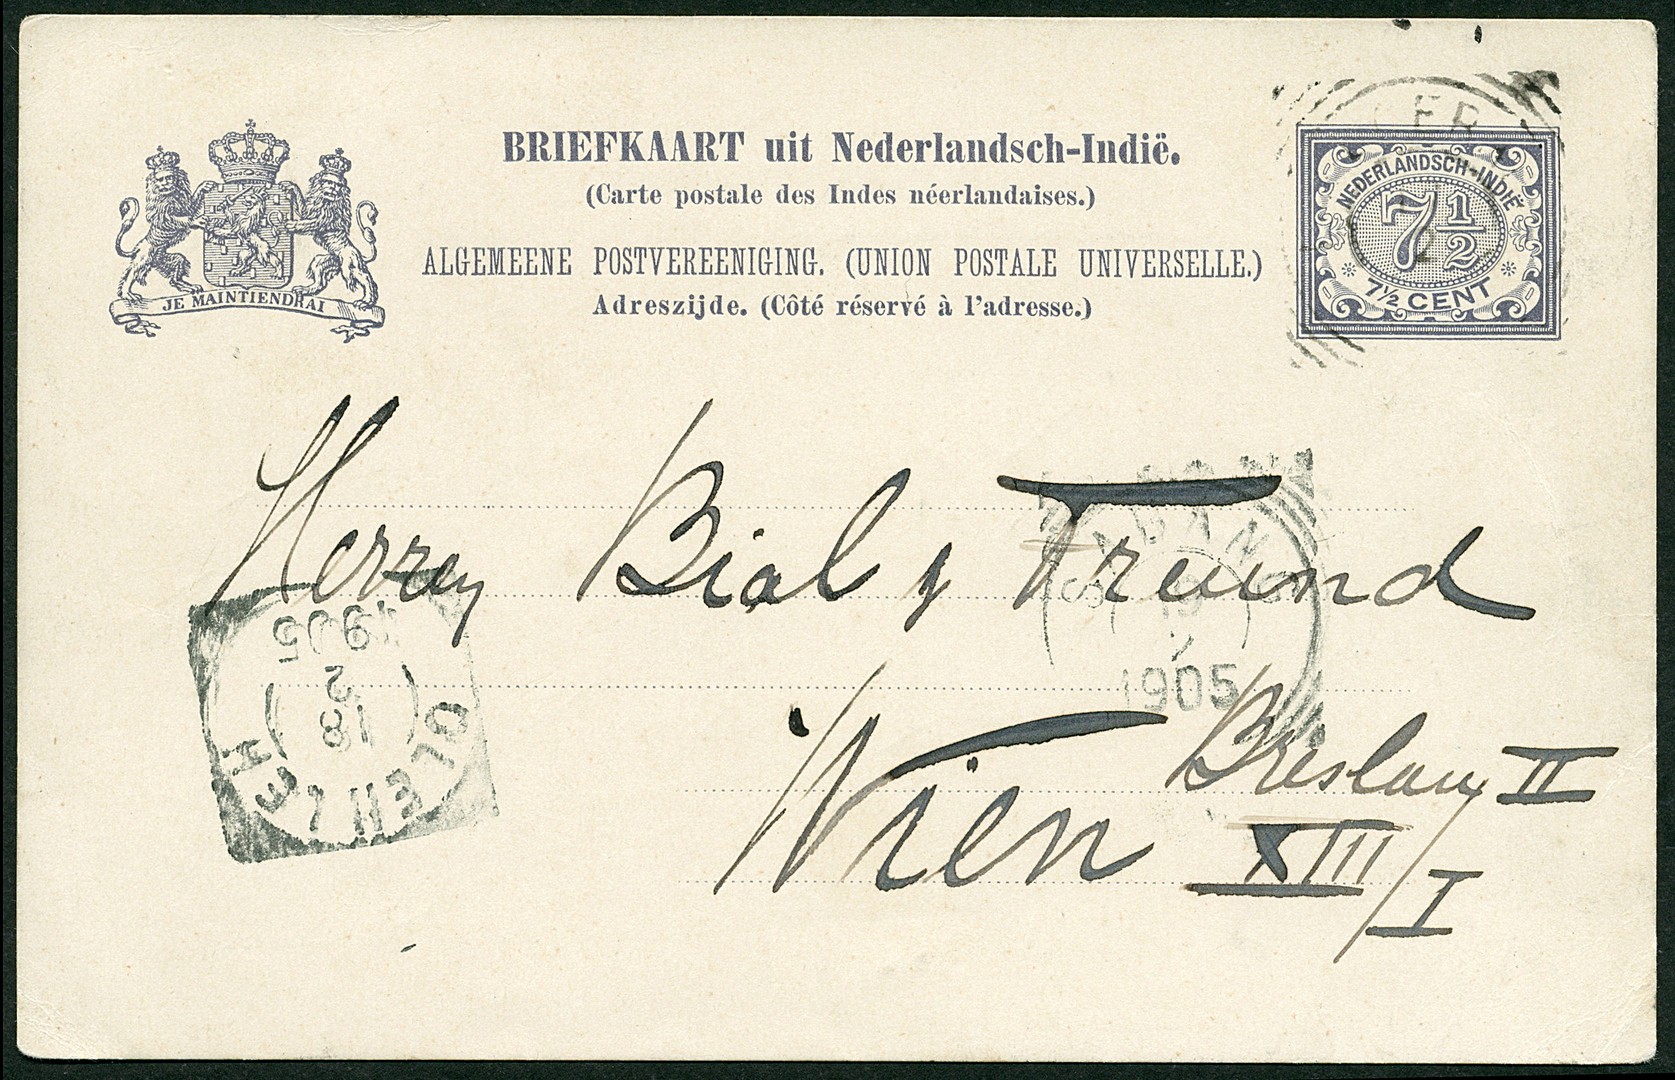 BRIEFKAART uit Nederlandsch-Indië.
(Carte postale des Indes néerlandaises.)
ALGEMEENE POSTVEREENIGING. (UNION POSTALE UNIVERSELLE.)
Adreszijde. (Côté réservé à l'adresse.)
JE MAINTIENDRAI
NEDERLANDSCH-INDIË
7 1/2
7 1/2 CENT
Herren Bial & Freund
Wien XIII/I
Breslau II
1905
OLEHLEH
18
2
1905